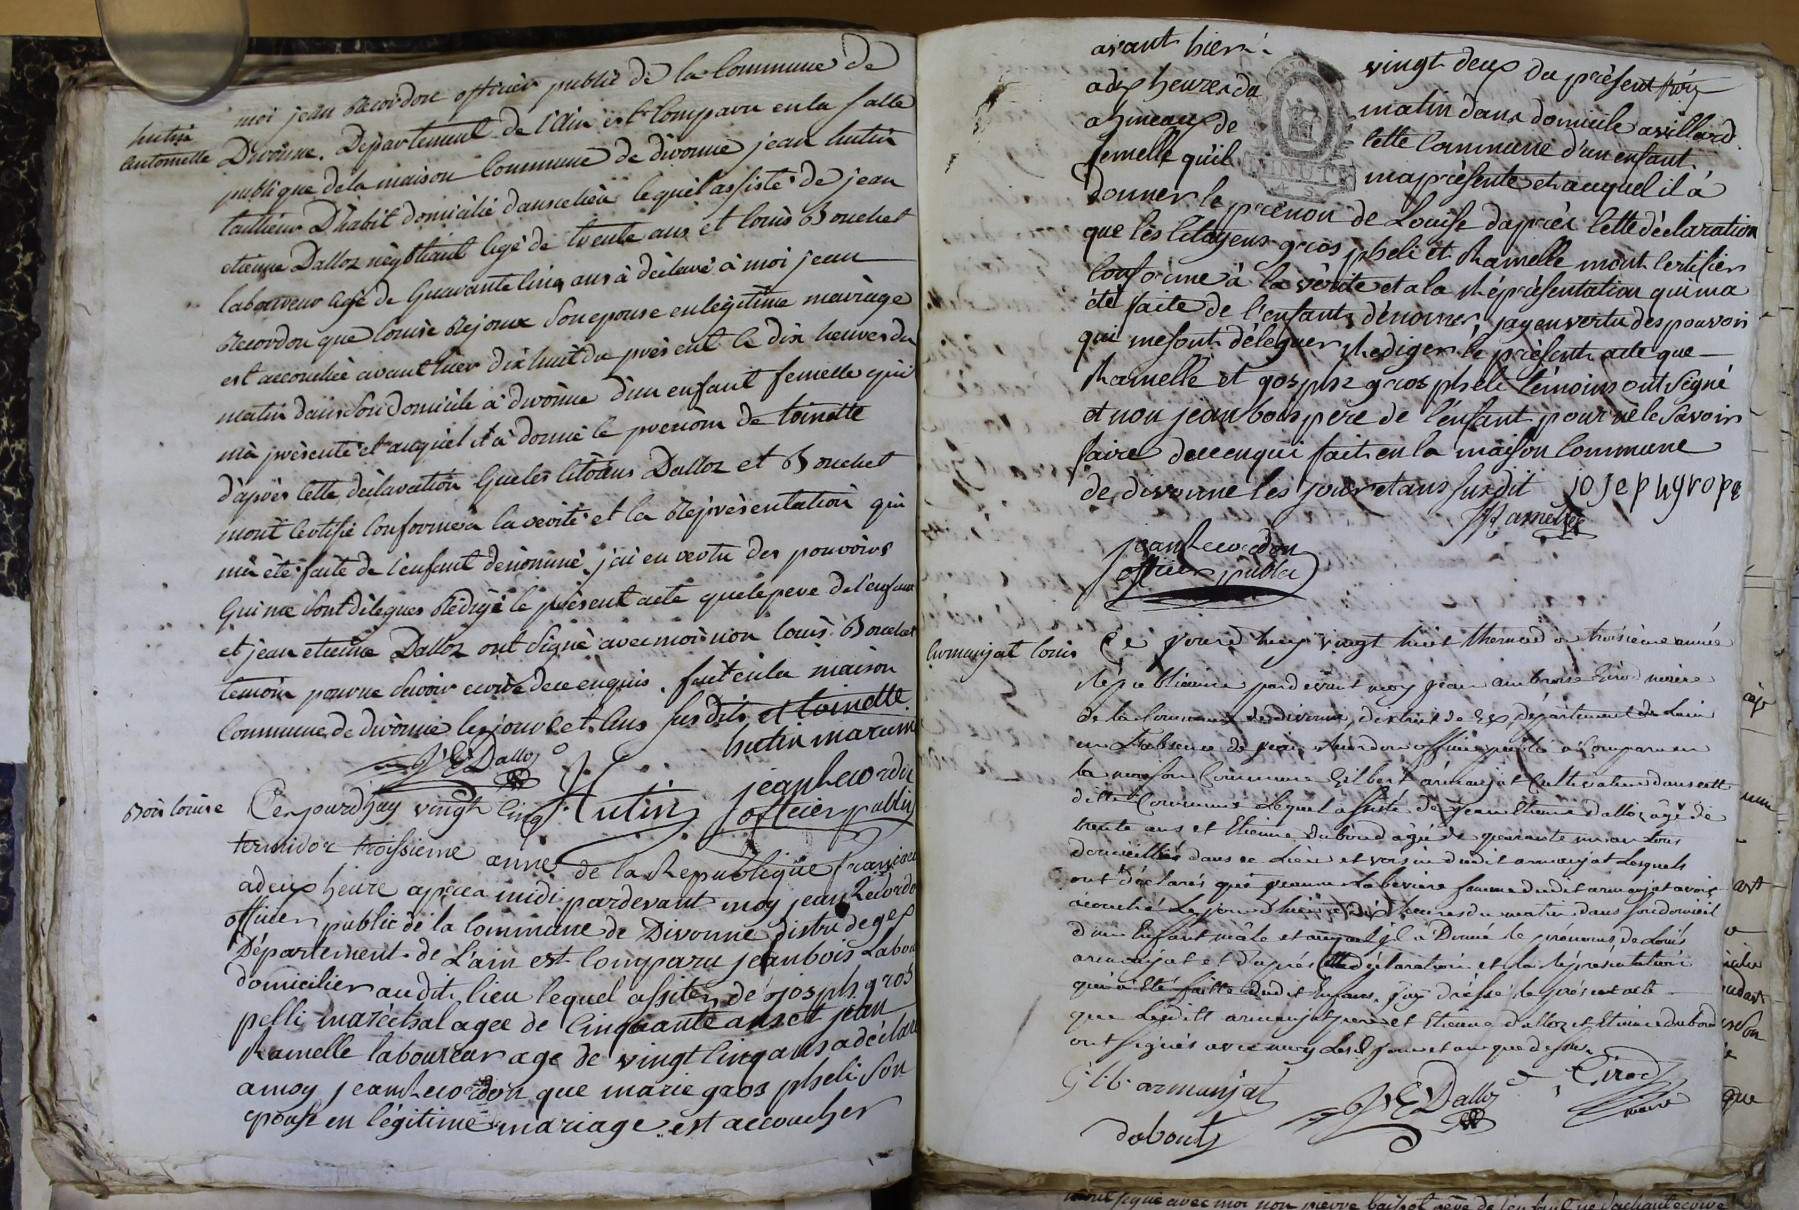 hutin
Antoinette
moi jean Recordon officier public de la Commune de
Divonne. Département de l'Ain est Comparu en la salle
publique de la maison Commune de divonne jean hutin
tallieur D'habit domicilié dans ce lieu lequel assisté de jean
etienne Dalloz négotiant agé de trente ans et louis Bouchet
laboureur agé de Quarante cinq ans à déclaré à moi jean
Recordon que louise Rejoux son epouse en legitime mariage
est accouchée avant hier dix huit du présent le dix heures du
matin dans son domicile à divonne d'un enfant femelle qui
m'a présenté et auquel il a donné le prenom de toinette
d'après cette déclaration Que les citoiens Dalloz et Bouchet
m'ont certifié Conforme à la verité et la Représentation qui
m'a été faite de l'enfant dénommé j'ai en vertu des pouvoirs
Qui me sont délegues Rédigé le présent acte que le pere de l'enfant
et jean etienne Dalloz ont signé avec moi non louis Bouchet
témoin pour ne savoir ecrire de ce enquis. fait en la maison
Commune de divonne le jour et l'ans susdits et toinette
hutin
J E Dalloz
Hutin
jean Recordon
officier public
Bois louise
Cejourdhuy vingt cinq
termidor troissieme anne de la Republique francaise
a deux heure aprèa midi pardevant moy jean Recordon
officier public de la Commune de Divonne distric de gex
Département de L'ain est Comparu jean bois Labou
domicilier audit lieu lequel assiter de josph gros
pelli marechal agee de Cinquante ans et jean
Ramelle laboureur age de vingt cinq ans a déclare
a moy jean Recordon que marie gros pheli son
epouse en légitime mariage est accoucher
avant hier vingt deux du présent mois
a dix heures du matin dans domicile a villard
de cette Commune d'un enfant
femelle qu'il ma présente et auquel il à
donner le prenon de Louise d'aprèi cette déclaration
que les Citoyens gros pheli et Ramelle mont Certifier
Conforme à la vérité et a la Représentation qui ma
été faite de l'enfant dénomer, jay en vertu des pouvoir
qui me sont déleguer Rediger le présent acte que
Ramelle et gros pheli témoins ont signé
et non jean bois pere de l'enfant pour ne le savoir
faire de ce enqui fait en la maison Commune
de divonne les jour et ans susdit josep gro pe
Ramelle
jean Recordon
officier public
Armanjat louis
Ce jourd huy vingt huit thermidor troisieme année
Républicaine pardevant moy jean ambroise Girod maire
de la Commune de divonne, district de Gex, département de Lain
en l'absence de jean Recordon officier public a Comparu en
la maison Commune Gilbert armanjat Cultivateur dans cette
ditte Commune Lequel assisté de jean Etienne dalloz agé de
trente ans et Etienne dubout agé de quarante un an tous
domiciliés dans ce Lieu et voisin dudit armanjat Lesquels
ont déclarés que jeanne Laberiere femme dudit armanjat avoit
accouché Le jour d'hier à dix heures du matin dans son domicile
d'un Enfant mâle et auquel il à Donné le prénoms de Loüis
armanjat et d'après cette déclaration et la représentation
qui à été faitte dudit Enfant, j'ay dressé le présent acte
que Ledit armanjat pere et Etienne dalloz et Etienne dubout
ont signés avec moy Les d. jour et an que dessus.
Gilb. armanjat
J E Dalloz
Girod
maire
dubout